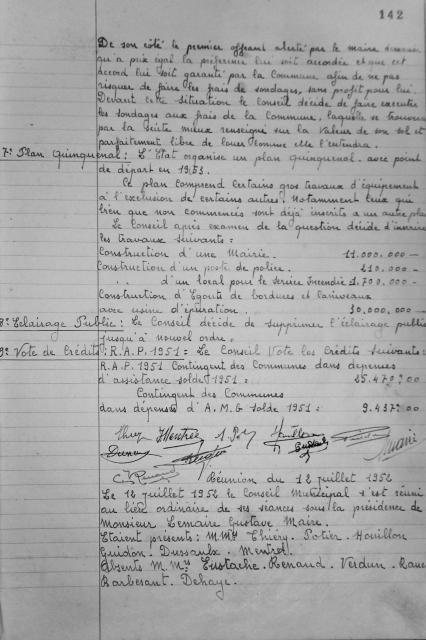 142
De son côté le premier offrant alerté par le maire demande
qu'à prix égal la préférence lui soit accordée et que cet
accord lui soit garanti par la Commune afin de ne pas
risquer de faire les frais de sondages, sans profit pour lui.
Devant cette situation le Conseil décide de faire exécuter
les sondages aux frais de la Commune, laquelle se trouvera
par la suite mieux renseigné sur la valeur de son sol et
parfaitement libre de louer comme elle l'entendra.
7° Plan Quinquenal : L'Etat organise un plan quinquenal avec point
de départ en 1953.
Ce plan comprend certains gros travaux d'équipement
à l'exclusion de certains autres. Notamment ceux qui
bien que non commencés sont déjà inscrits à un autre plan
Le Conseil après examen de la question décide d'inscrire
les travaux suivants :
Construction d'une Mairie. 11.000.000 —
Construction d'un poste de police. 210.000 —
" . d'un local pour le Service Incendie 1.700.000 —
Construction d'Egouts de bordures et caniveaux
avec usine d'épuration. 30.000.000 —
8° Eclairage Public : Le Conseil décide de supprimer l'éclairage public
jusqu'à nouvel ordre.
9° Vote de Crédits : R.A.P. 1951 : Le Conseil Vote les Crédits Suivants :
R.A.P. 1951 Contingent des Communes dans dépenses
d'assistance solde 1951 : 25.470 : 00
Contingent des Communes
dans dépenses d'A.M.G solde 1951 : 9.437 : 00
Réunion du 12 juillet 1952
Le 12 juillet 1952 le Conseil Municipal s'est réuni
au lieu ordinaire de ses séances sous la présidence de
Monsieur Lemaire Gustave Maire.
Etaient présents : M.M. Thiéry. Potier. Houillon
Guidon. Dussaulx. Mentrel.
Absents M. Mrs Eustache. Renaud. Verdun.
Barbesant. Dehaye.